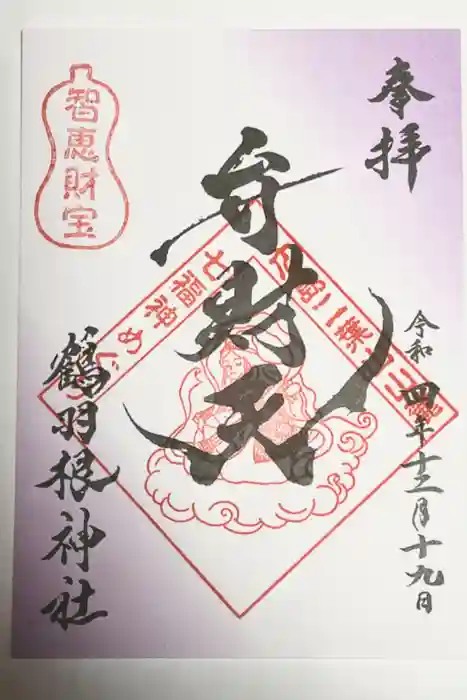 奉拝
令和四年十二月十九日
弁財天
七福神めぐり
智恵財宝
鶴羽根神社